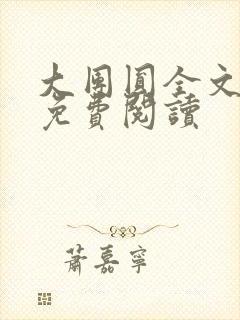 大團圓全文
免費閱讀
蕭嘉寧